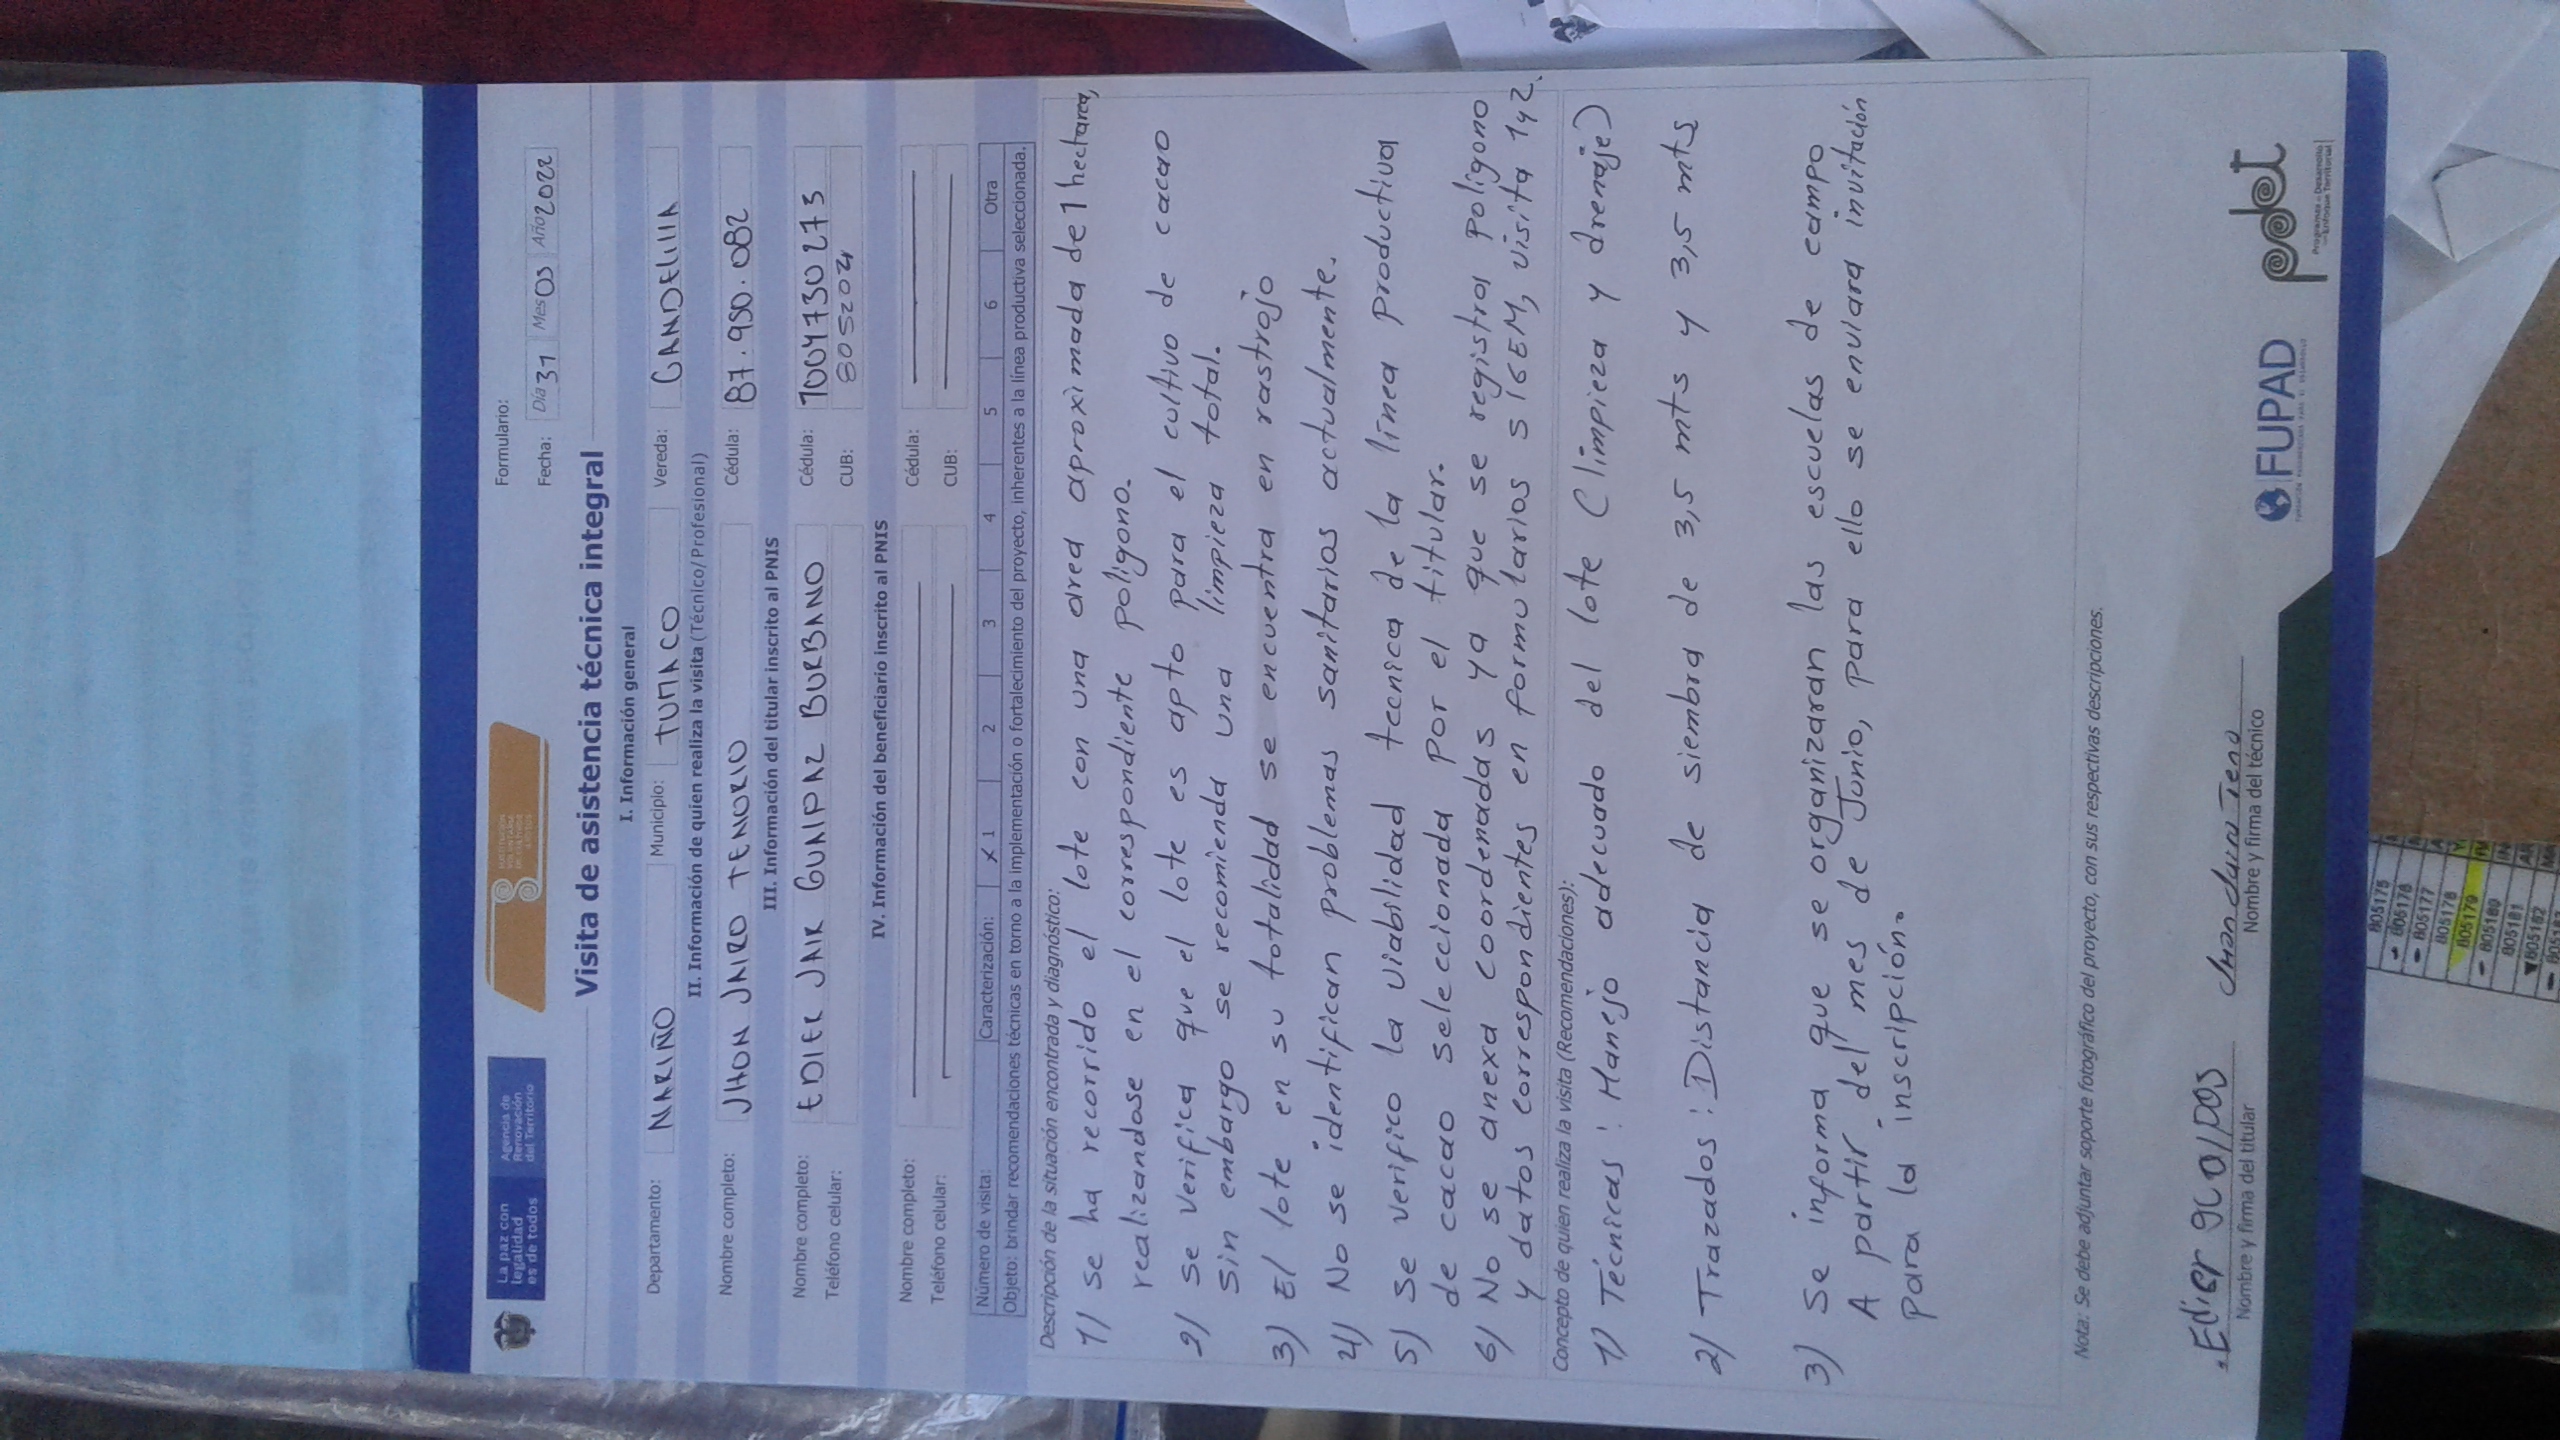 La paz con
legalidad
es de todos
Agencia de
Renovación
del Territorio
SUSTITUCIÓN
VOLUNTARIA
DE CULTIVOS
ILÍCITOS
Formulario:
Fecha: Día 31 Mes 03 Año 2022
Visita de asistencia técnica integral
I. Información general
Departamento: NARIÑO Municipio: TUMACO Vereda: CANDELILLA
II. Información de quien realiza la visita (Técnico/Profesional)
Nombre completo: JHON JAIRO TENORIO Cédula: 87.950.082
III. Información del titular inscrito al PNIS
Nombre completo: EDIER JAIR GUNPAZ BURBANO Cédula: 1004730273
Teléfono celular: CUB: 805204
IV. Información del beneficiario inscrito al PNIS
Nombre completo: Cédula:
Teléfono celular: CUB:
Número de visita: Caracterización: X 1 2 3 4 5 6 Otra
Objeto: brindar recomendaciones técnicas en torno a la implementación o fortalecimiento del proyecto, inherentes a la línea productiva seleccionada.
Descripción de la situación encontrada y diagnóstico:
1) se ha recorrido el lote con una area aproximada de 1 hectarea,
realizandose en el correspondiente polígono.
2) se verifica que el lote es apto para el cultivo de cacao
sin embargo se recomienda una limpieza total.
3) El lote en su totalidad se encuentra en rastrojo
4) No se identifican problemas sanitarios actualmente.
5) se verifico la viabilidad tecnica de la línea productiva
de cacao seleccionada por el titular.
6) No se anexa coordenadas ya que se registra polígono
y datos correspondientes en formularios SIGEM, visita 1y2.
Concepto de quien realiza la visita (Recomendaciones):
1) Técnicas: Manejo adecuado del lote (limpieza y drenaje)
2) Trazados: Distancia de siembra de 3,5 mts y 3,5 mts
3) Se informa que se organizaran las escuelas de campo
A partir del mes de Junio, para ello se enviara invitación
para la inscripción.
Nota: Se debe adjuntar soporte fotográfico del proyecto, con sus respectivas descripciones.
Edier
Nombre y firma del titular
Nombre y firma del técnico
FUPAD
pdet
Programas de Desarrollo
con Enfoque Territorial
805175
805176
805177
805178
805179
805180
805181
805182